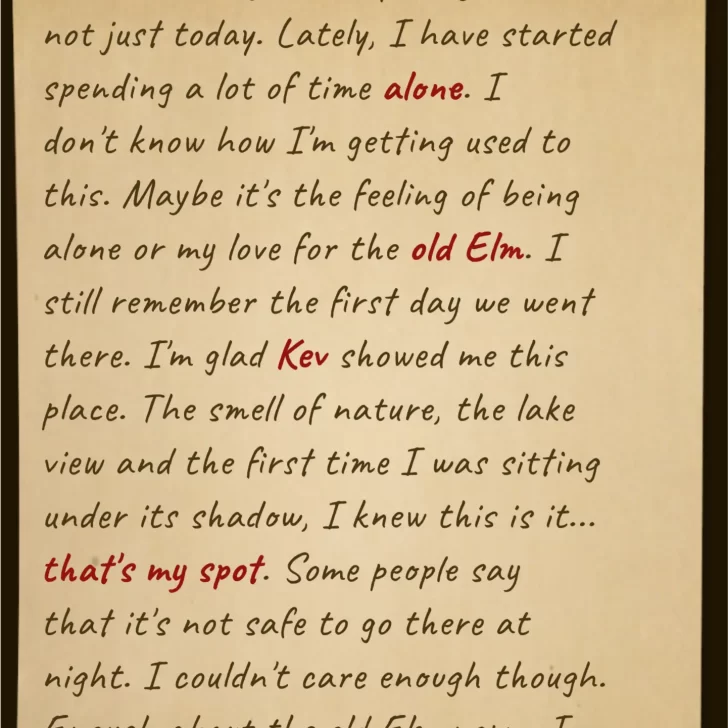 not just today. Lately, I have started
spending a lot of time alone. I
don't know how I'm getting used to
this. Maybe it's the feeling of being
alone or my love for the old Elm. I
still remember the first day we went
there. I'm glad Kev showed me this
place. The smell of nature, the lake
view and the first time I was sitting
under its shadow, I knew this is it...
that's my spot. Some people say
that it's not safe to go there at
night. I couldn't care enough though.
Enough about the old Elm now. I